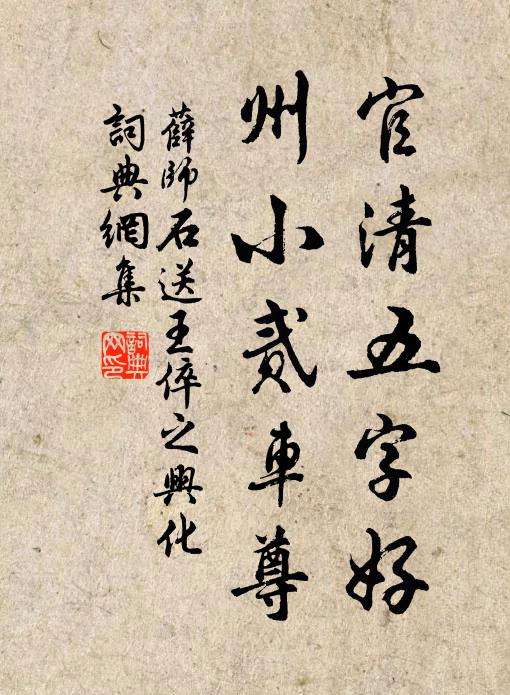 官清五字好
州小貳車尊
薛師石送王倅之興化
詞典網集
詞典網印